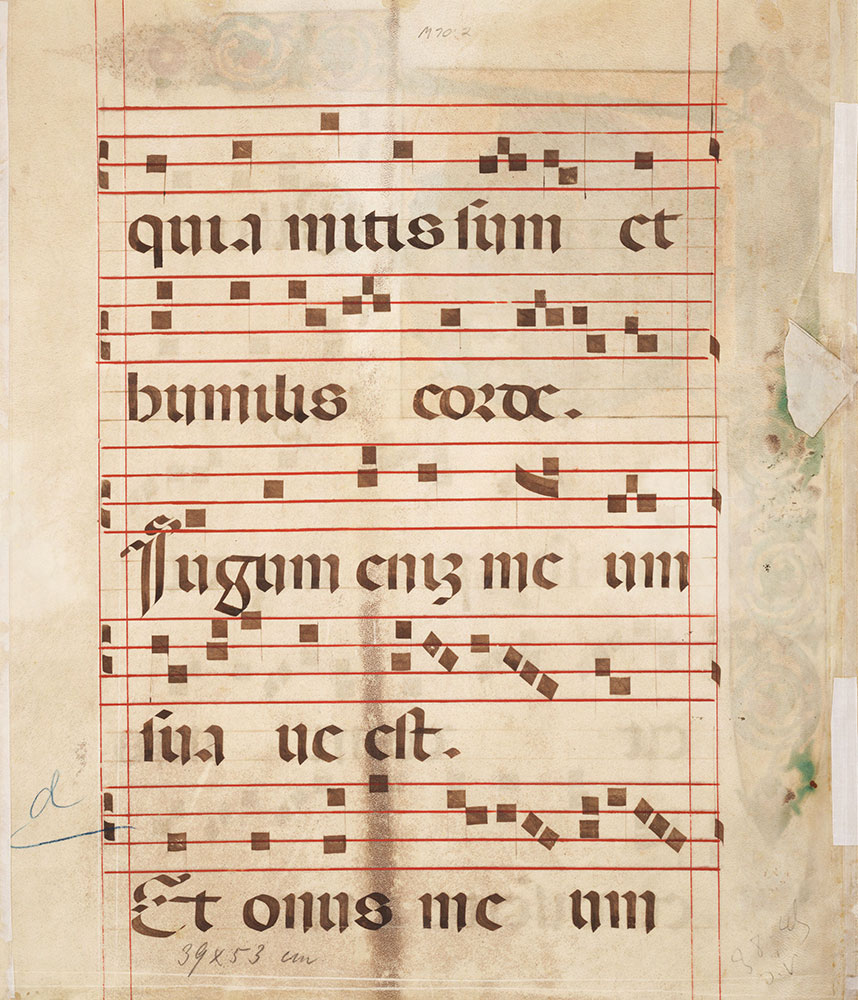 M 70:2
quia mitis sum et
humilis corde.
Iugum eniz me um
sua ue est.
d
Et onus me um
39 x 53 cm